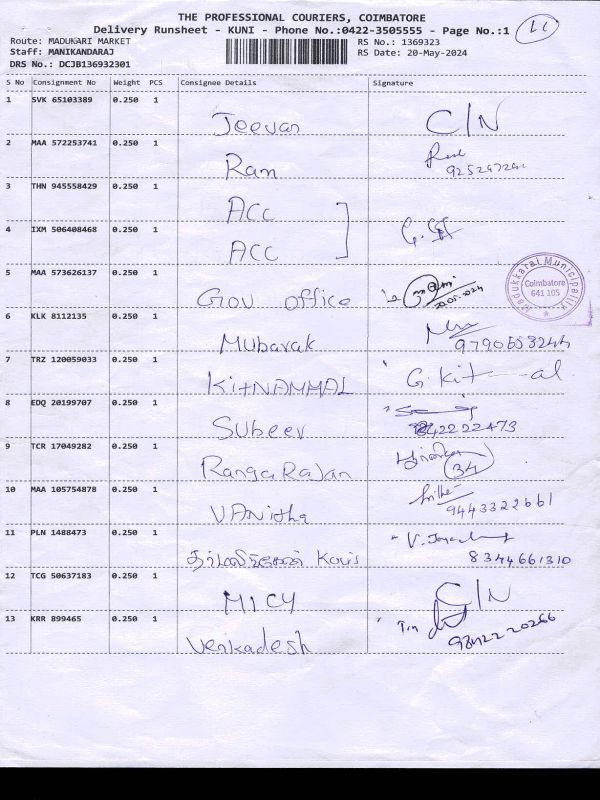 THE PROFESSIONAL COURIERS, COIMBATORE
Delivery Runsheet - KUNI - Phone No.:0422-3505555 - Page No.:1
Route: MADUKARI MARKET
RS No.: 1369323
Staff: MANIKANDARAJ
RS Date: 20-May-2024
DRS No.: DCJB136932301
S No Consignment No Weight PCS Consignee Details Signature
1 SVK 65103389 0.250 1 Jeevan C/N
2 MAA 572253741 0.250 1 Ram
3 THN 945558429 0.250 1 ACC
4 IXM 506408468 0.250 1 ACC
5 MAA 573626137 0.250 1 Gov office 20.05.2024
Madukkarai Municipality Coimbatore 641 105
6 KLK 8112135 0.250 1 Mubarak
7 TRZ 120059033 0.250 1 KitNAMMAL
8 EDQ 20199707 0.250 1 Subeer
9 TCR 17049282 0.250 1 RangaRajan 34
10 MAA 105754878 0.250 1 VANitha 9443322661
11 PLN 1488473 0.250 1 8344661310
12 TCG 50637183 0.250 1 MICY C/N
13 KRR 899465 0.250 1 Venkadesh 98422 20266